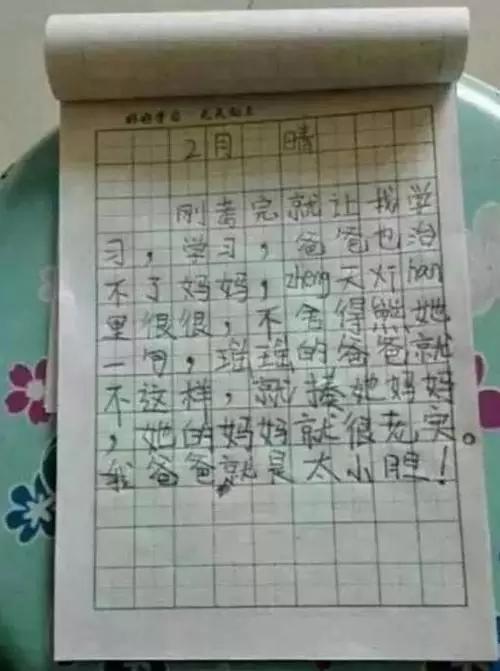 好好学习 天天向上
2月 晴
刚考完就让我学
习,学习,爸爸也治
不了妈妈,zheng天对han
里很很,不舍得熊她
一句,瑶瑶的爸爸就
不这样,就揍她妈妈
,她的妈妈就很老实。
我爸爸就是太小胆!